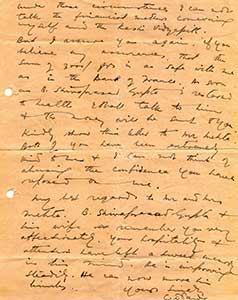 under these circumstances I can now
talk the financial matters concerning
myself in the Kashi Vidyapith.
But I assure you again, if you
believe my assurances, that the
sum of 2000/ pos is as safe with me
as in the Bank of France. As soon
as B. Shivaprasad Gupta is restored
to health I shall talk to him
& the money will be sent to you
Kindly show this letter to Mr Mehta
Both of you have been extremely
kind to me & I can not think of
abusing the confidence you have
reposed in me.
My best regards to Mr and Mrs
Mehta. B. Shivaprasad Gupta &
his wife also remember you very
affectionately. Your hospitality &
attention have left a sweet memory
in his mind. He is improving
steadily. He can now move his
limbs.
Yours